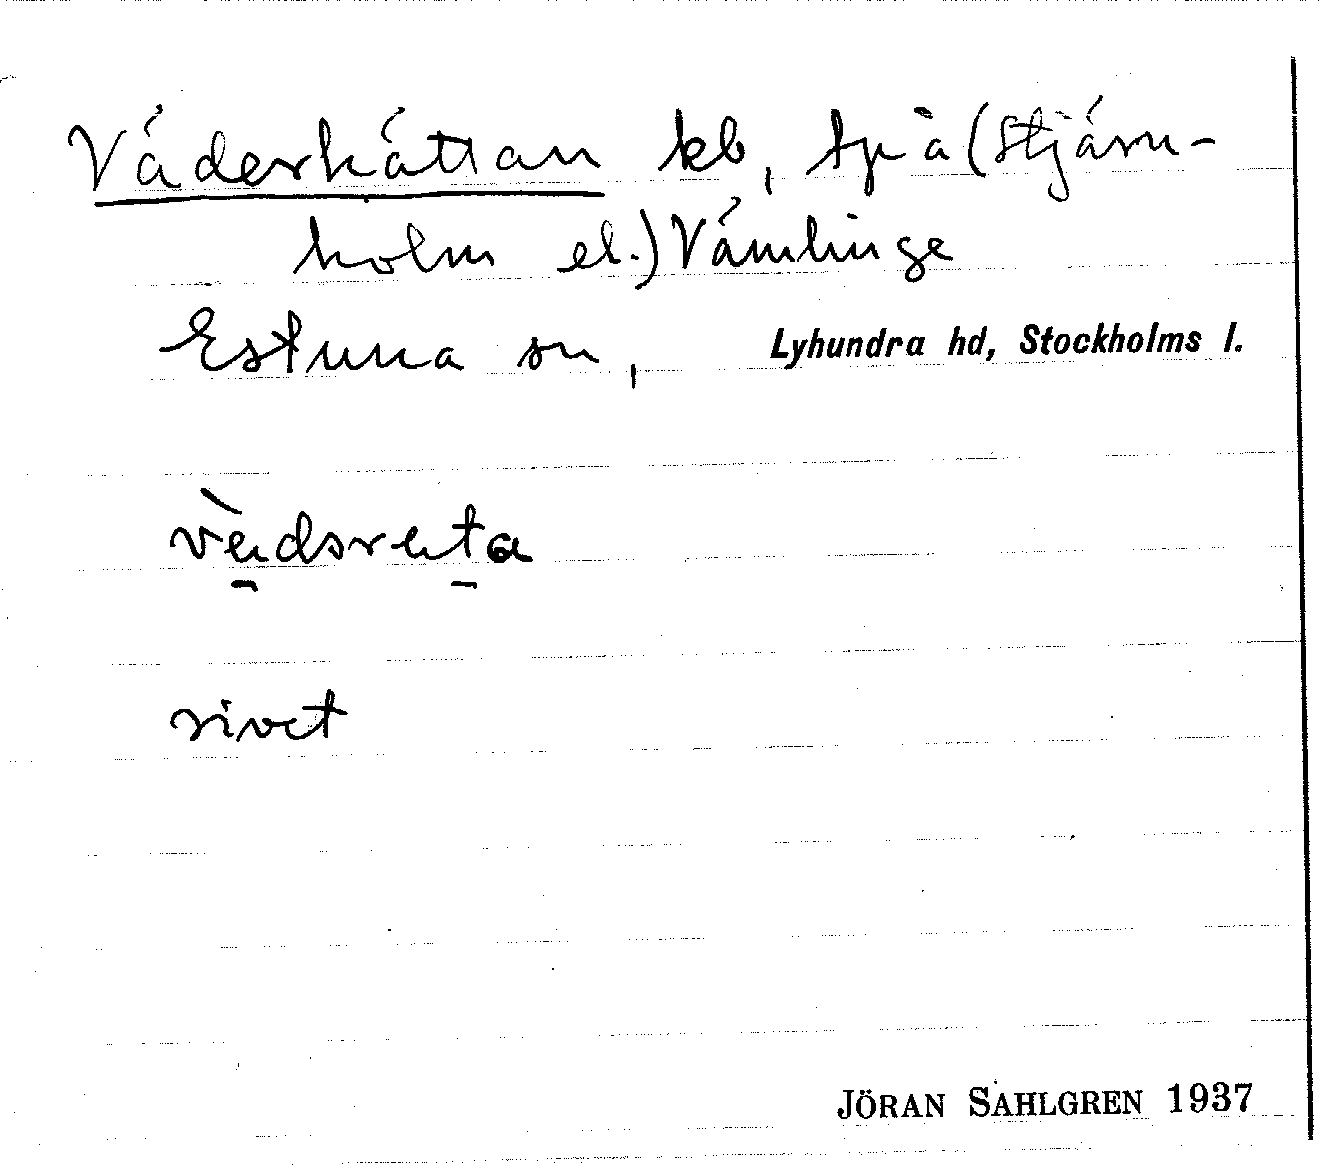 Väderhättan kb, tp å (Stjärn-
holm el.) Vämlinge
Estuna sn, Lyhundra hd, Stockholms l.
rivet
JÖRAN SAHLGREN 1937